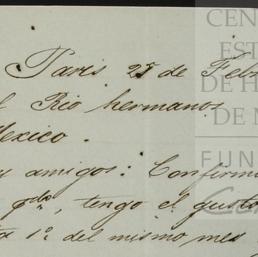 Paris 25 de Febr
Rio hermanos
Mexico.
amigos: Confirma
pdo, tengo el gusto
1º del mismo mes
CEN
EST
DE H
DE M
FUN
Ca